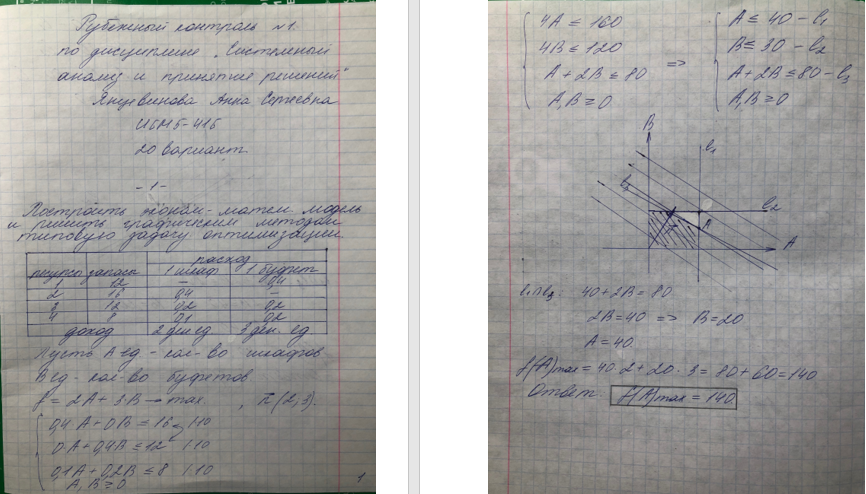 Рубежный контроль №1
по дисциплине "Системный
анализ и принятие решений"
Анна Сергеевна
20 вариант
-1-
Построить эконом-матем модель
и решить графическим методом
типовую задачу оптимизации
ресурсы запасы расход
1 шкаф 1 буфет
1 12 — 0,4
2 16 0,4 —
3 12 0,2 0,2
4 8 0,1 0,2
доход 2 ден ед 3 ден. ед
Пусть A ед - кол-во шкафов
B ед - кол-во буфетов
f = 2A + 3B → max , n̄(2,3).
0,4A + 0B = 16 |·10
0A + 0,4A ≤ 12 |·10
0,1A + 0,2B ≤ 8 |·10
A, B ≥ 0
1
4A ≤ 160
4B ≤ 120
A + 2B ≤ 80
A, B ≥ 0
=>
A ≤ 40 - l₁
B ≤ 30 - l₂
A + 2B ≤ 80 - l₃
A, B ≥ 0
B
l₁
l₃
l₂
A
A
l₁∩l₃: 40 + 2B = 80
2B = 40 => B = 20
A = 40
f(A)max = 40·2 + 20·3 = 80 + 60 = 140
Ответ: f(A)max = 140